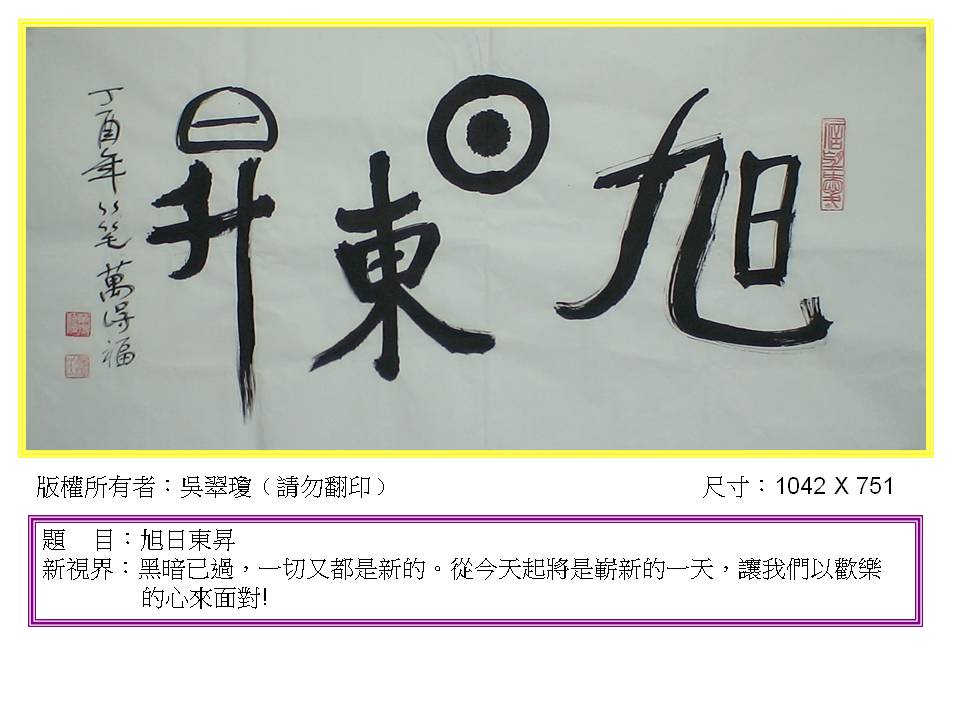 旭日東昇
丁酉年
萬得福
版權所有者：吳翠瓊（請勿翻印）
尺寸：1042 X 751
題　目：旭日東昇
新視界：黑暗已過，一切又都是新的。從今天起將是嶄新的一天，讓我們以歡樂
的心來面對!